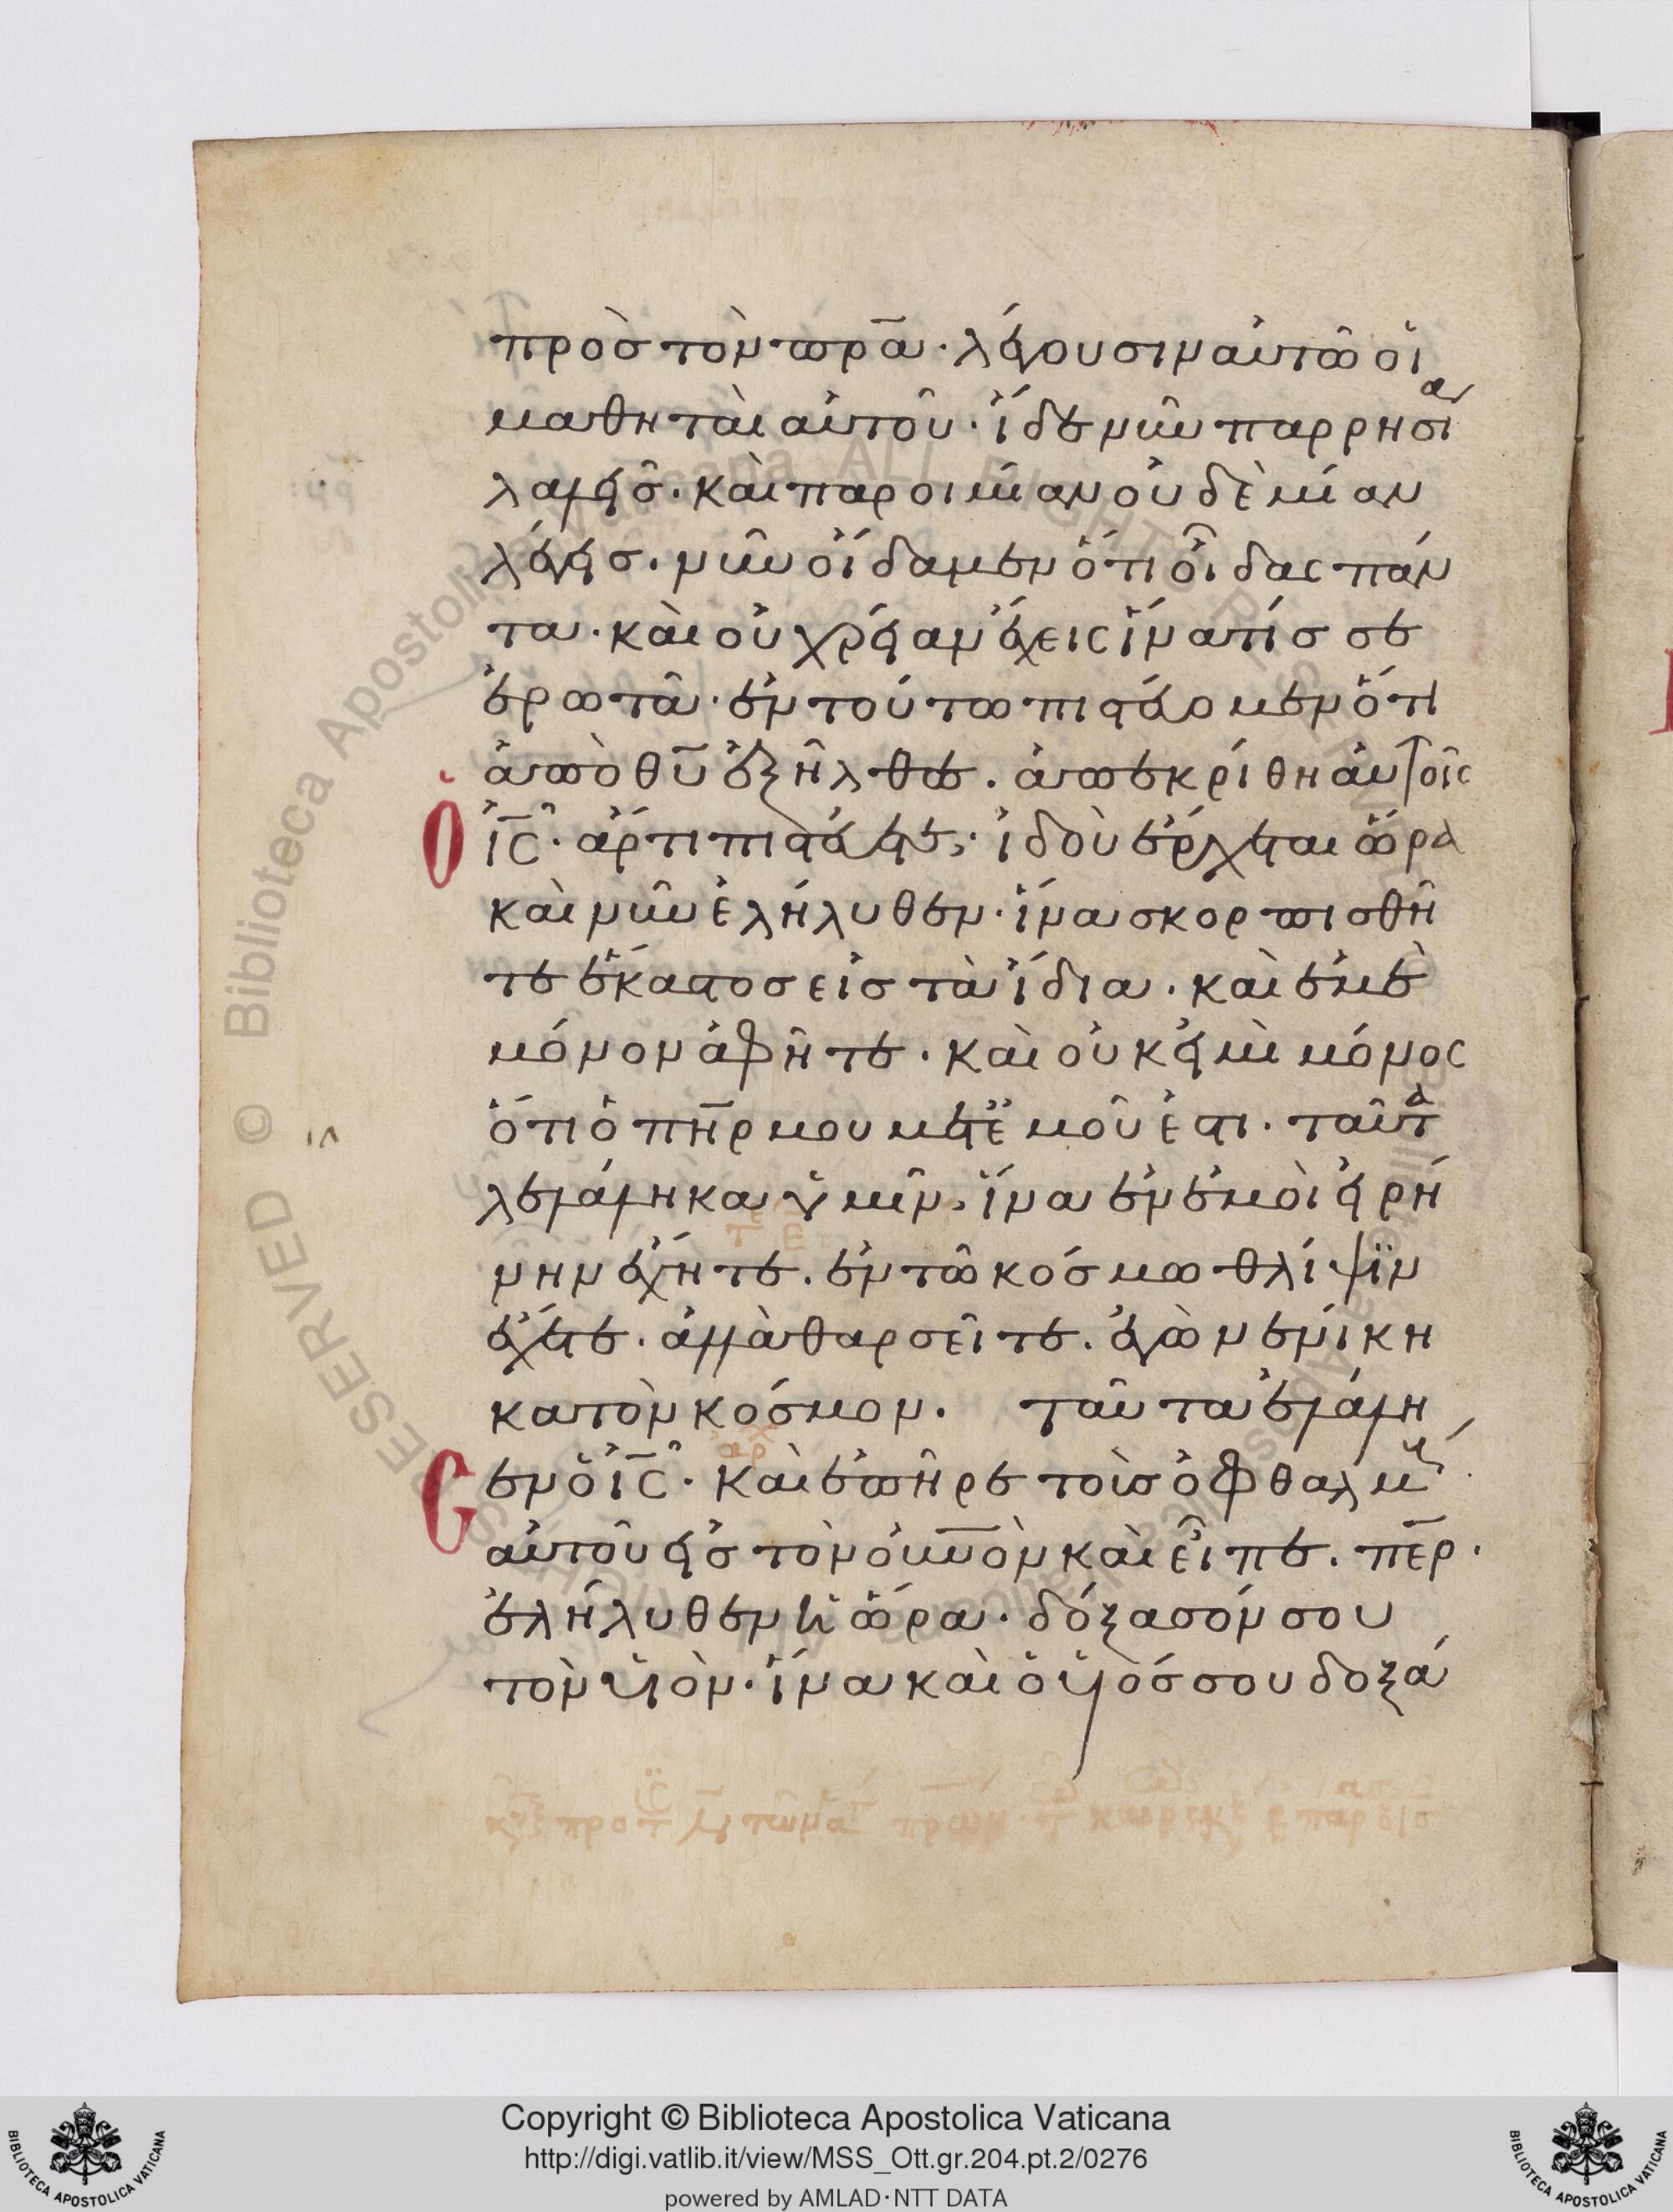 πρὸσ τὸν πρ̅α· λέγουσιν αὐτῶ οἱ
μαθηταὶ αὐτοῦ· ἴδε νῦν παρρησία
λαλεῖσ· καὶ παροιμίαν οὐδὲμίαν
λέγεισ· νῦν οἴδαμεν ὅτι οἶδας πάν
τα· καὶ οὐ χρείαν ἔχεις ἵνα τίσ σε
ἐρωτᾶ· ἐν τούτω πιστεύομεν ὅτι
ἀπὸ θυ̅ ἐξῆλθες. ἀπεκρίθη αὐτοῖς
Ὁ ἰς̅· ἄρτι πιστεύετε· ἰδοὺ ἔρχεται ὥρα
καὶ νῦν ἐλήλυθεν· ἵνα σκορπισθῆ
τε ἕκαστοσ εἰσ τὰ ἴδια· καὶ ἐμὲ
μόνον ἀφῆτε· καὶ οὐκ εἰμὶ μόνος
ὅτι ὁ πη̅ρ μου μετ ἐμοῦ ἐστι· ταῦτα
λελάληκα ὑμῖν, ἵνα ἐν ἐμοὶ εἰρή
νην ἔχητε. ἐν τῶ κόσμω θλίψϊν
ἔχετε· ἀλλὰ θαρσεῖτε. ἐγὼ νενίκη
κα τὸν κόσμον. ταῦτα ἐλάλη
σεν ὁ ἰς̅· Καὶ ἐπῆρε τοὺσ ὀφθαλμοὺσ
αὐτοῦ εἰσ τὸν οὐν̅ὸν καὶ εἶπε. πε̅ρ·
ἐλήλυθεν ἡ ὥρα· δόξασόν σου
τὸν υἱὸν· ἵνα καὶ ὁ υἱόσ σου δοξά
Biblioteca Apostolica Vaticana ALL RIGHTS RESERVED ©
Copyright © Biblioteca Apostolica Vaticana
http://digi.vatlib.it/view/MSS_Ott.gr.204.pt.2/0276
powered by AMLAD·NTT DATA
BIBLIOTECA APOSTOLICA VATICANA
BIBLIOTECA APOSTOLICA VATICANA